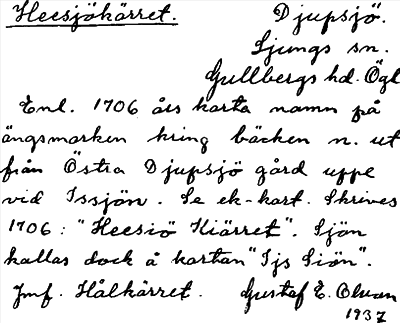 Heesjökärret. Djupsjö.
Ljungs sn.
Gullbergs hd. Ögl
Enl. 1706 års karta namn på
ängsmarken kring bäcken n. ut
från Östra Djupsjö gård uppe
vid Issjön. Se ek-kart. Skrives
1706: "Heesiö Kiärret". Sjön
kallas dock å kartan "Ijs Siön".
Jmf. Hålkärret. Gustaf E. Olsson
1937